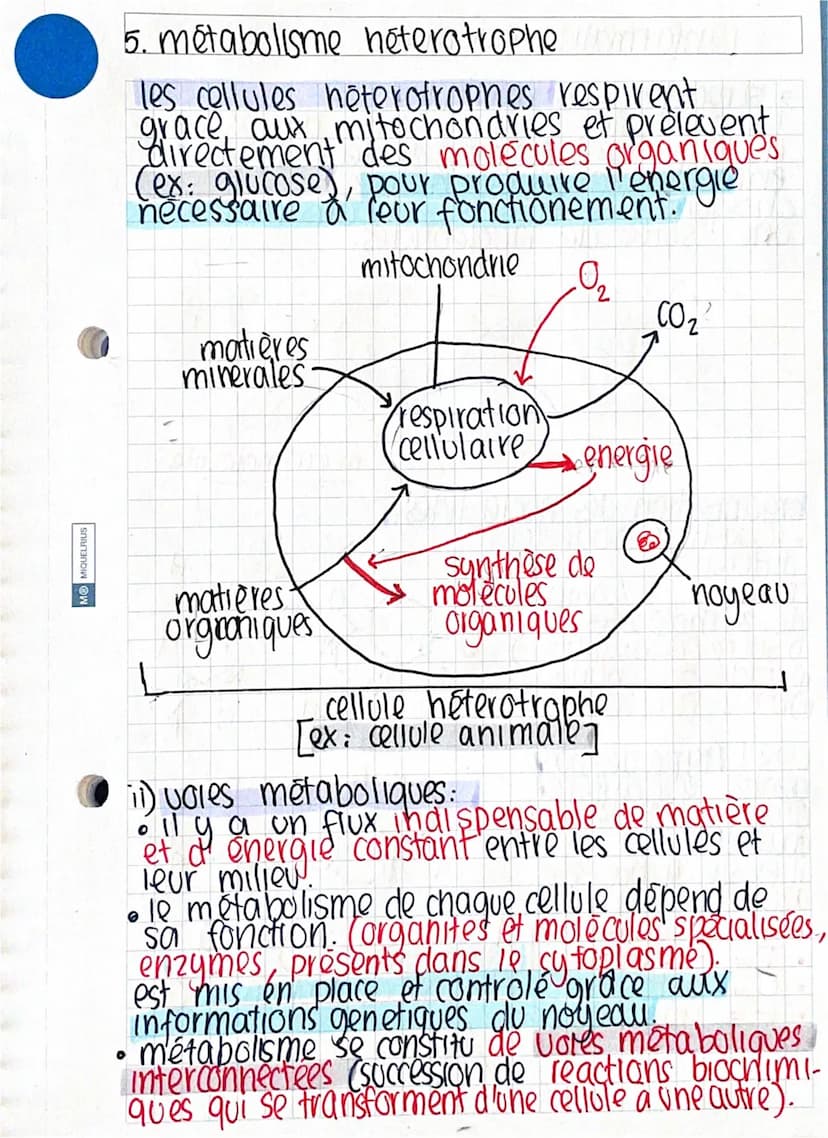 5. métabolisme hétérotrophe
les cellules hétérotrophes respirent
grace aux mitochondries et prélèvent
directement des molécules organiques
(ex: glucose), pour produire l'énergie
nécessaire à leur fonctionement.
mitochondrie
O2
CO2
matières
minerales
respiration
cellulaire
energie
synthèse de
molécules
organiques
noyeau
matières
organiques
cellule hétérotrophe
[ex: cellule animale]
M® MIQUELRIUS
ii) voies métaboliques:
• il y a un flux indispensable de matière
et d'énergie constant entre les cellules et
leur milieu.
• le métabolisme de chaque cellule dépend de
sa fonction. (organites et molécules spécialisées,
enzymes, présents dans le cytoplasme).
est mis en place et controlé grâce aux
informations genetiques du noyeau.
• métabolisme se constitu de voies métaboliques
interconnectées (succession de reactions biochimi-
ques qui se transforment d'une cellule a une autre).